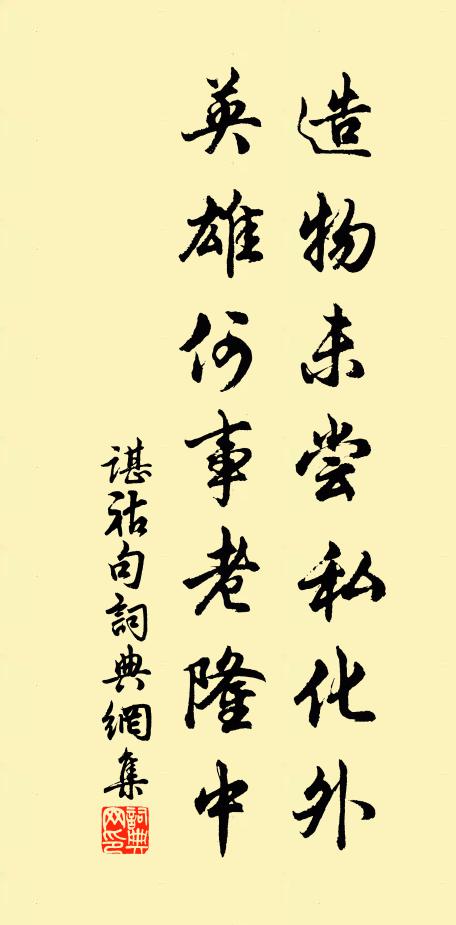 造物未尝私化外
英雄何事老隆中
谌祜句詞典網集
詞典网印